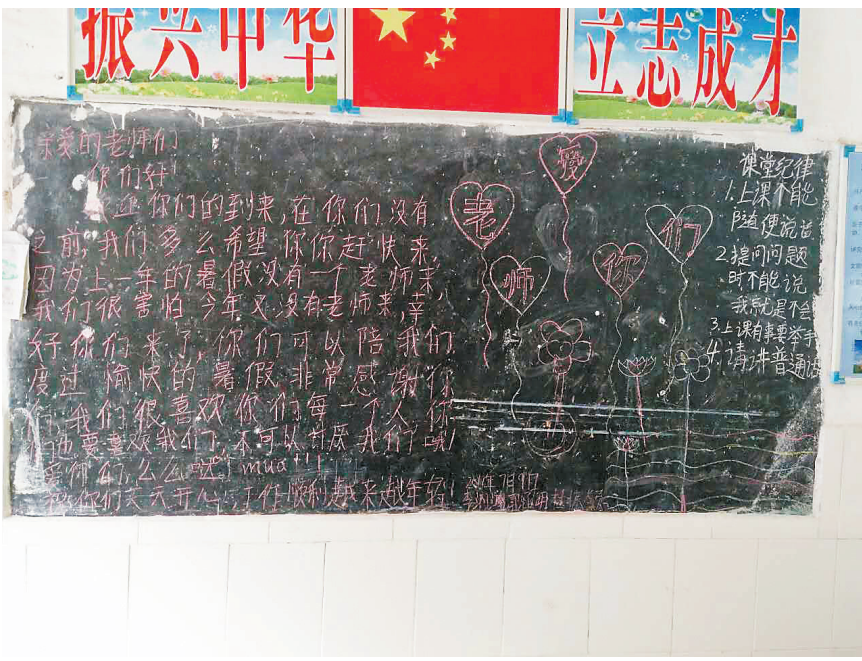 振兴中华
立志成才
亲爱的老师们
你们好!
欢迎你们的到来,在你们没有
之前,我们多么希望你你赶快来
因为上一年的暑假没有一个老师来,
我们很害怕今年又没有老师来,幸
好你们来了,你们可以陪我们
度过愉快的暑假,非常感谢你
们,我们很喜欢你们每一个人,你
们也要喜欢我们,不可以讨厌我们哦!
爱你们,么么哒!mua!!!
祝你们天天开心,工作顺利,越来越年轻!
7月9日
老
师
爱
你
们
课堂纪律
1.上课不能
随便说话
2.提问问题
时不能说
我就是不会
3.上课有事要举手
4.请讲普通话